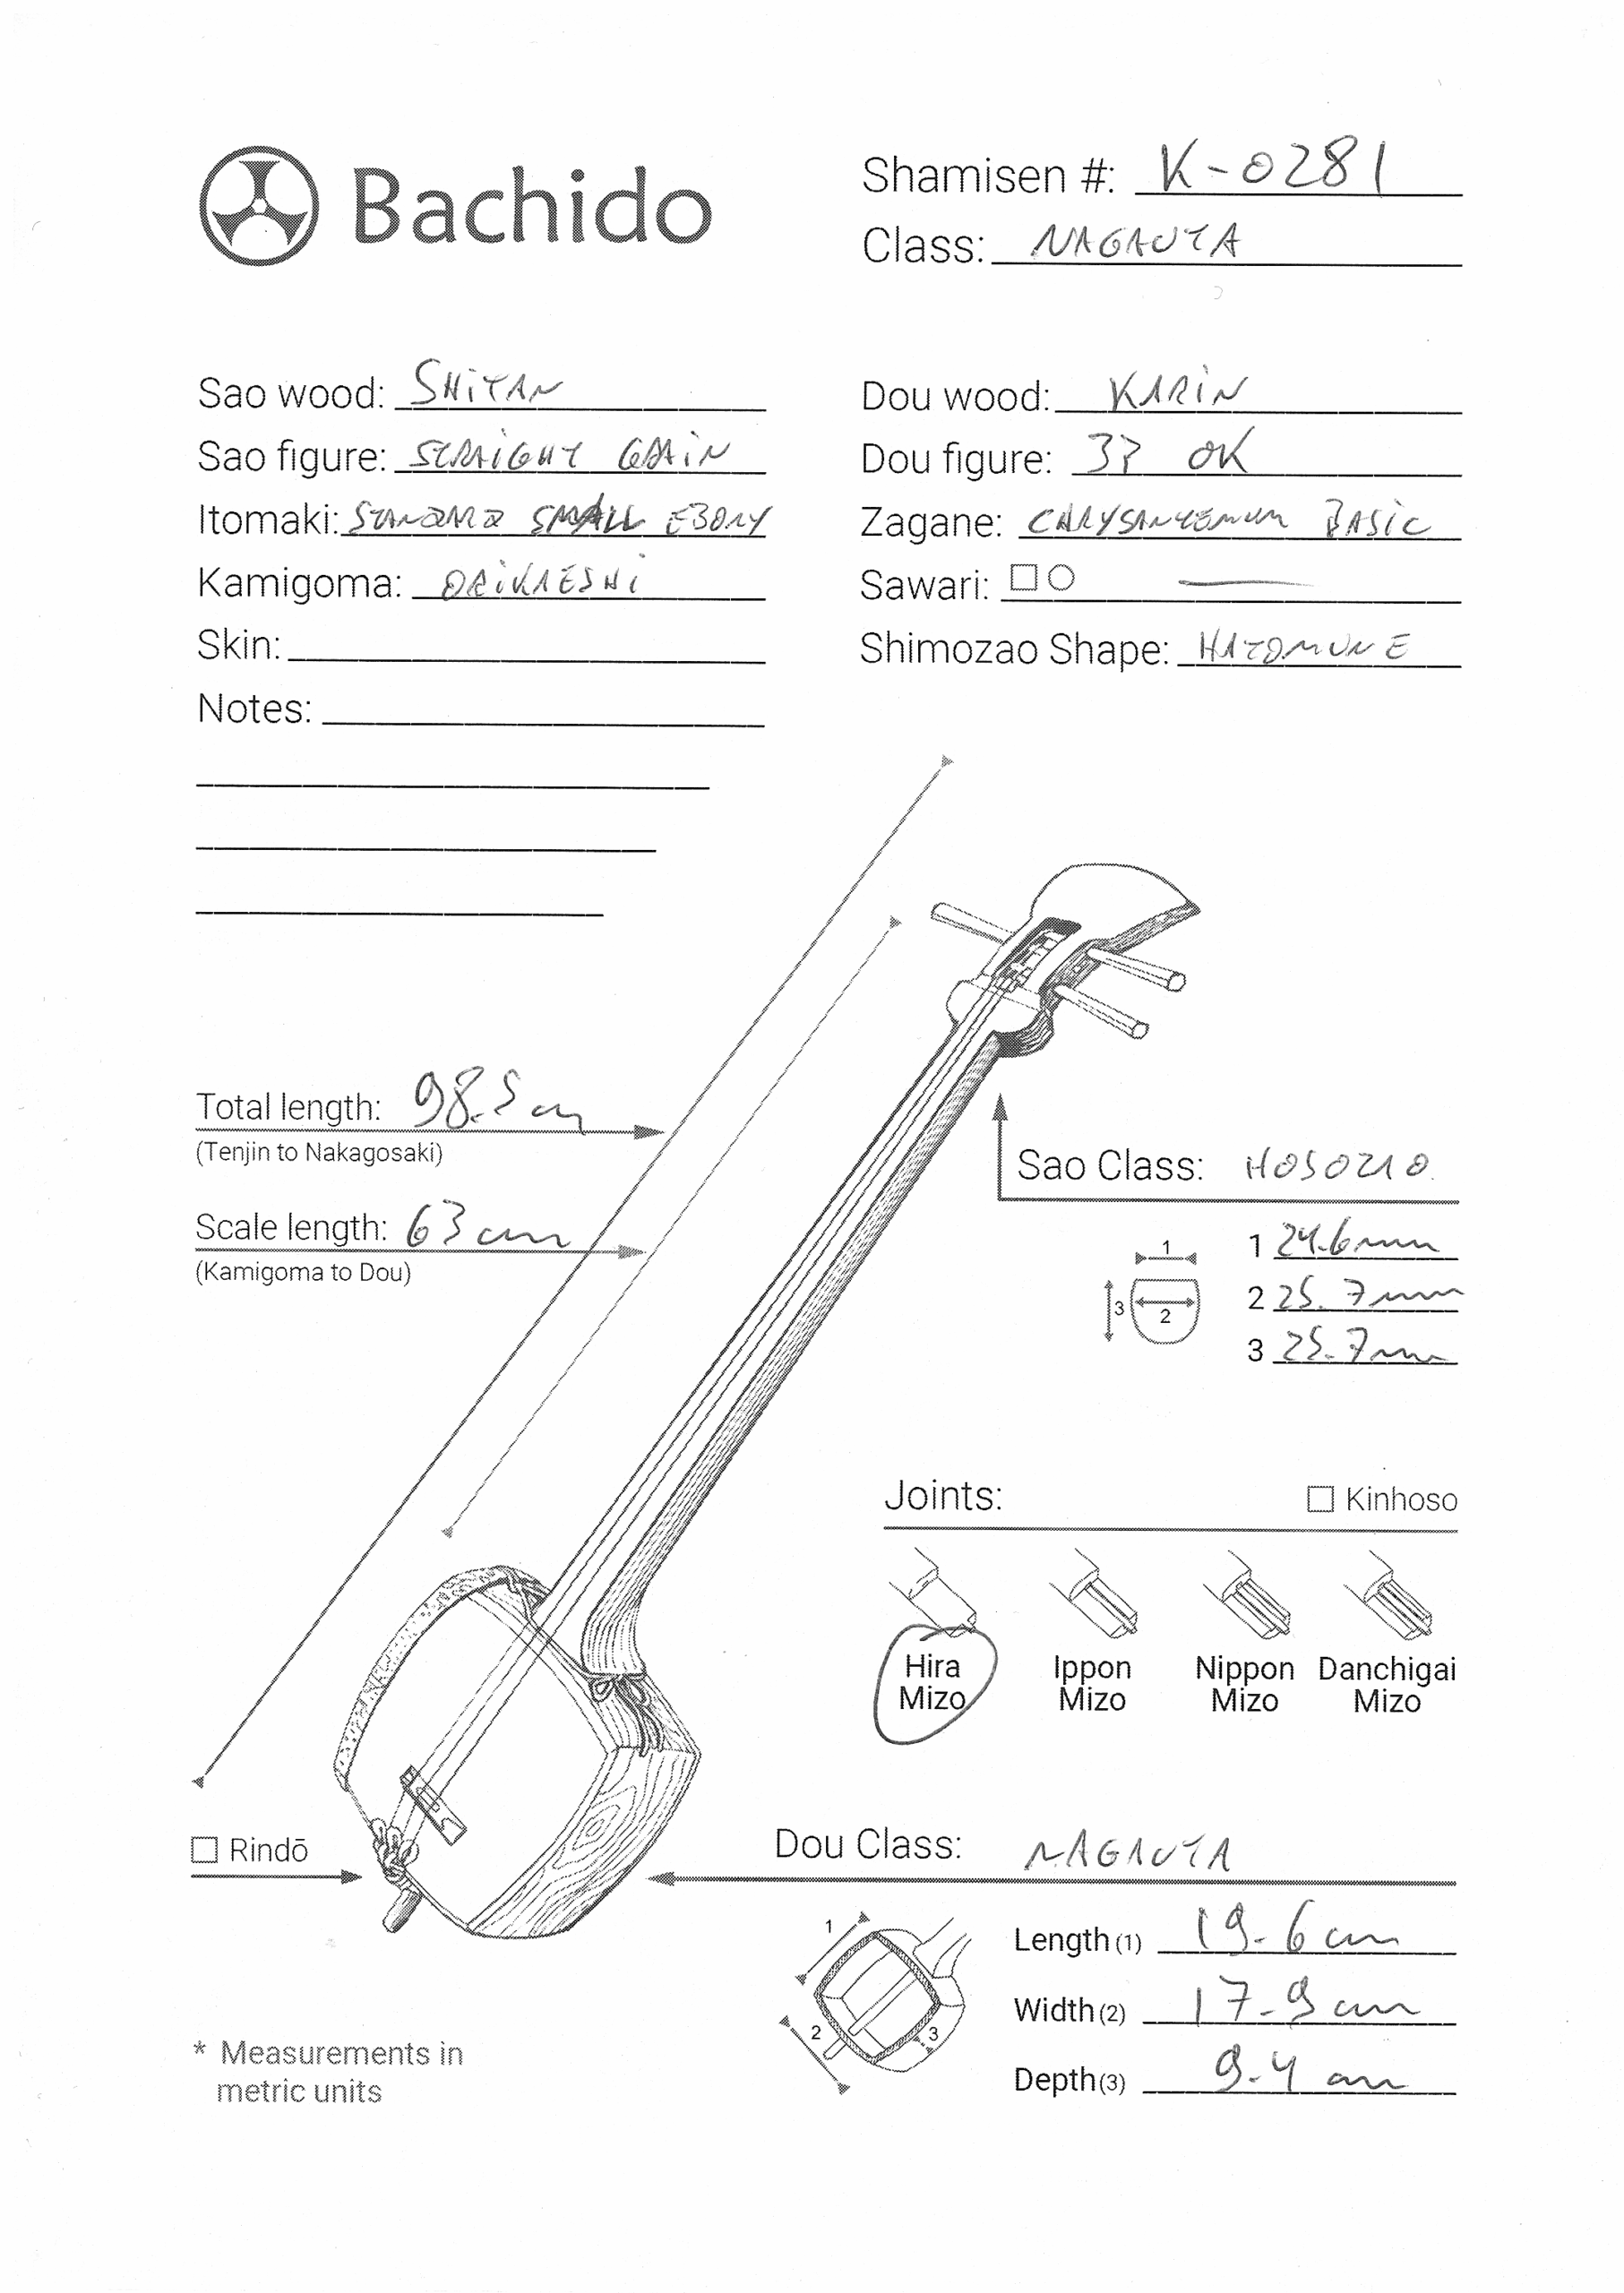 Bachido
Shamisen #: K-0281
Class: NAGAUTA
Sao wood: SHiTAN
Sao figure: STRAIGHT GRAiN
Itomaki: STANDARD SMALL EBONY
Kamigoma: ORiKAESHi
Skin:
Notes:
Dou wood: KARiN
Dou figure: OK
Zagane: CHRYSANTEMUM BASiC
Sawari:
Shimozao Shape: HATOMUNE
Total length: 98.5 cm
(Tenjin to Nakagosaki)
Scale length: 63 cm
(Kamigoma to Dou)
Sao Class: HOSOZAO
1
3
2
1 24.6mm
2 25.7mm
3 25.7mm
Joints:
Kinhoso
Hira Mizo
Ippon Mizo
Nippon Mizo
Danchigai Mizo
Rindō
Dou Class: NAGAUTA
1
2
3
Length(1) 19.6 cm
Width(2) 17.9 cm
Depth(3) 9.4 cm
* Measurements in
metric units